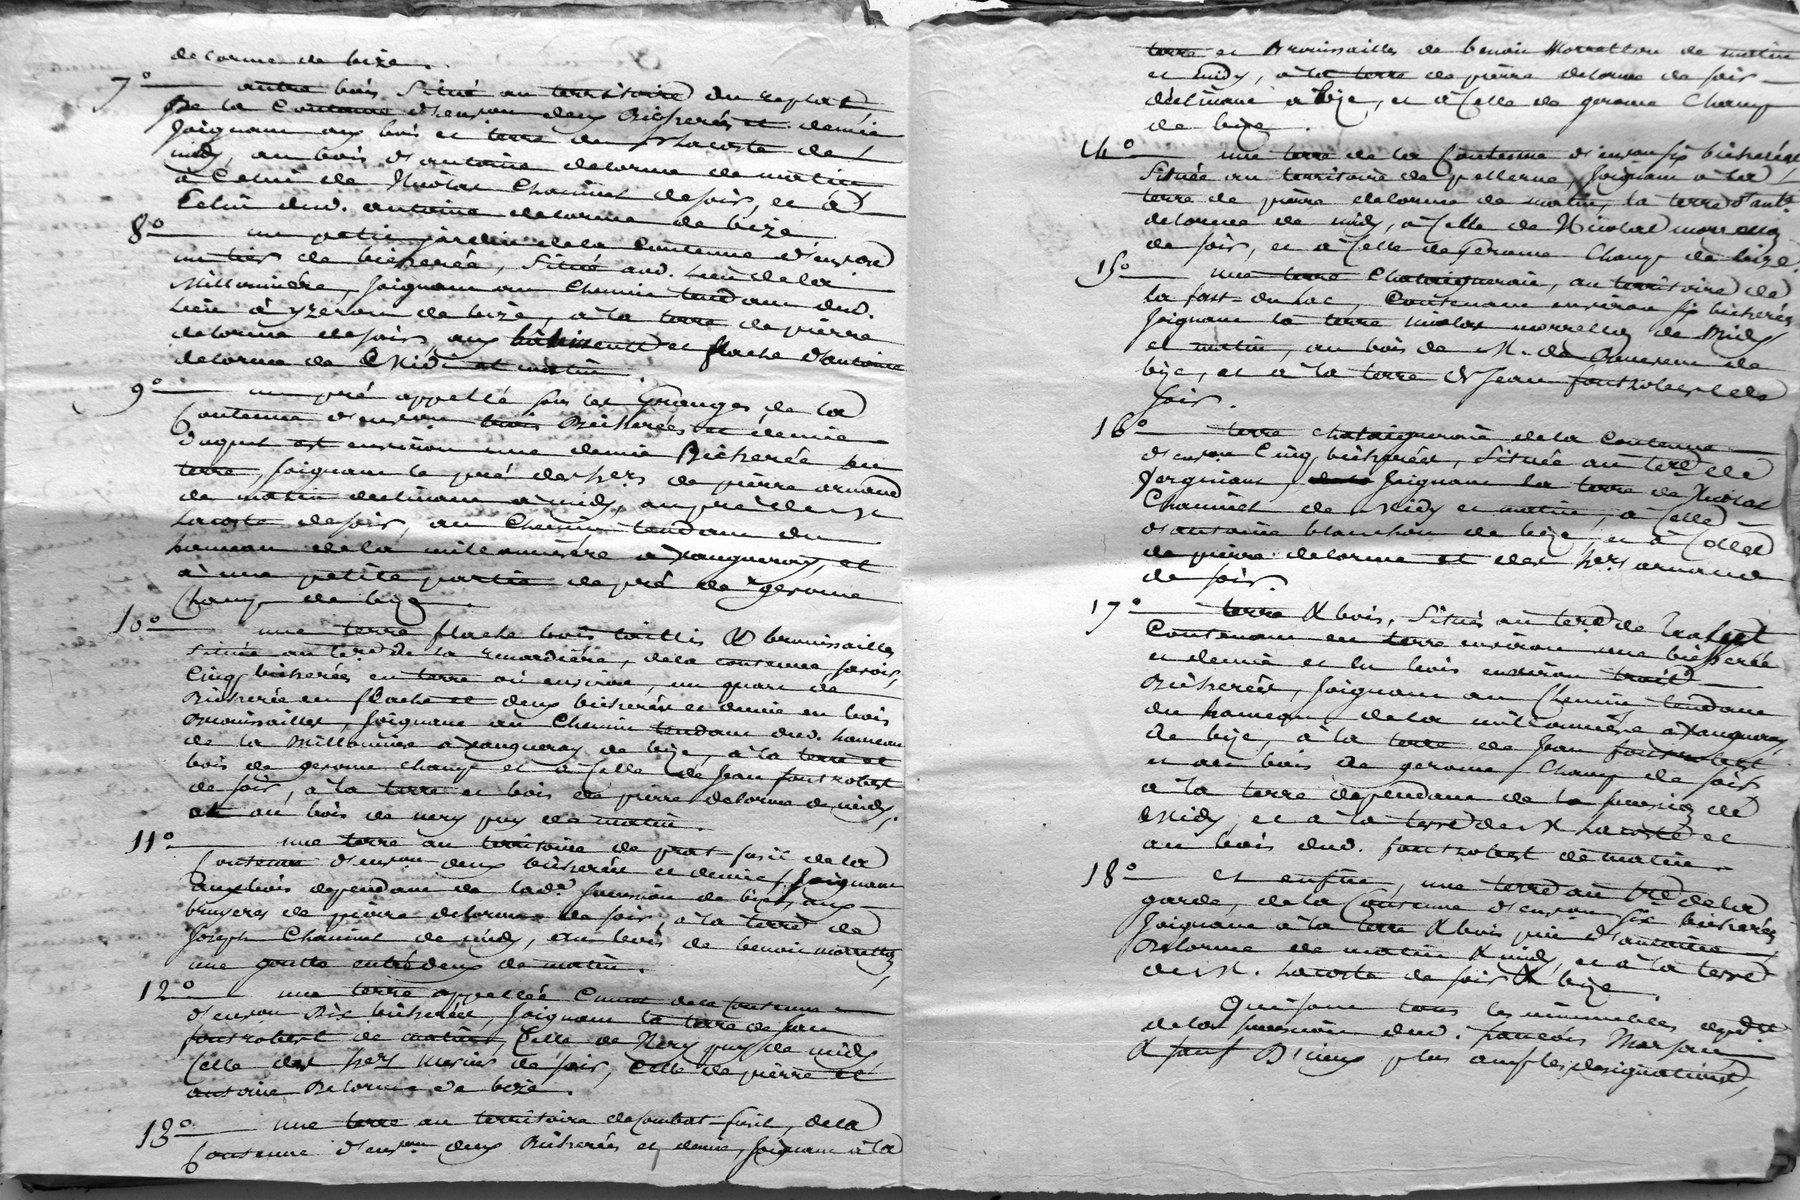 delorme de bize.
7º autre bois situé au territoire du replat
de la Contenue d'environ deux Bicherées et demie
Joignant aux bois et terre du Sr Lacoste de
midy, au bois d'antoine delorme de matin
à Celui de Nicolas Chaminet de soir, et à
Celui dud. antoine delorme de bize
8º un petit jardin de la Contenue d'environ
un tiers de bicherée, Situé aud. Lieu de la
Millonniére, Joignant au Chemin tendant dud.
Lieu à yzeron de bize, à la terre de pierre
delorme de soir, aux batiments et flache d'antoine
delorme de Midi et matin.
9º un pré appellé sous les Granges de la
Contenue d'environ trois Bicherées et demie
Duquel est environ une demie Bicherée en
terre, Joignant le pré des hers de pierre arnaud
de matin declinant à midy, au pré de Sr
Lacoste de soir, au Chemin tendant du
hameau de la millonniére à vaugneray et
à une petite partie de pré de gerome
Champ de bize
10º une terre flache bois taillis & broussailles
Située au terre de la renardiére, de la contenue savoir,
Cinq bicherées en terre ou environ, un quart de
Bicherée en flache et deux bicherées et demie en bois
Broussailles, Joignant au Chemin tendant dud. hameau
de la Millonniére à vaugneray de bize, à la terre et
bois de gerome champ et à Celle de Jean fontrobert
de soir, à la terre et bois de pierre delorme de midy,
et au bois de nery puy de matin.
11º une terre au territoire de prat fusil de la
Contenue d'environ deux bicherées et demie, Joignant
aux bois dependant de lade. sucession de bize, aux
bruyeres de pierre delorme de soir, à la terre de
Joseph Chaminet de midy, aux bois de benoit morrellon
une goutte entre deux de matin.
12º une terre appellée de la Contenue
d'environ Dix bicherées, Joignant la terre de Jean
fontrobert de matin, Celle de Nery puy de midy
Celle des hers de soir, Celle de pierre et
antoine Delorme de bize.
13º une terre au territoire de combat fusil, de la
Contenue d'environ deux Bicherées et demie, Joignant à la
terre et Brouissailles de benoit Morrellon de matin
et midy, à la terre de pierre delorme de soir
déclinant à bize, et à Celle de gerome Champ
de bize.
14º une terre de la Contenue d'environ six bicherées
Située au territoire de pellerne, Joignant à la
terre de pierre delorme de matin, la terre d'antne
delorme de midy, à Celle de Nicolas morrellon
de soir, et à Celle de Gerome Champ de bize.
15º une terre Chataigneraie, au territoire de
la fast-du-lac, Contenant environ six bicherées
Joignant la terre Nicolas morrellon de Midy
et matin, au bois de M. de de
bize, et à la terre de Jean fontrobert de
soir.
16º terre chataigneraie de la Contenue
d'environ Cinq bicherées, Située au terre de
Joignant la terre de Nicolas
Chaminet de midy et matin, à Celle
d'antoine blanchon de bize, et à Celles
de pierre delorme et des hers arnaud
de soir
17º terre & bois, Situés au terre de
Contenant en terre environ une bicherée
et demie et en bois environ trois
Bicherées, Joignant au Chemin tendant
du hameau de la millonniére à vaugneray
de bize, à la terre de Jean fontrobert
et au bois de gerome Champ de soir
à la terre dependant de la sucession de
Midy, et à la terre de Sr Lacoste et
au bois dud. fontrobert de matin.
18º et enfin, une terre au tre de la
garde, de la Contenue d'environ six bicherées
Joignant à la terre & bois pin d'antoine
Delorme de matin & midy, et à la terre
de Sr. Lacoste de soir & bize.
Qui sont tous les immeubles dependt
de la sucession dud. françois
& sauf D'iceux plus amples designations,